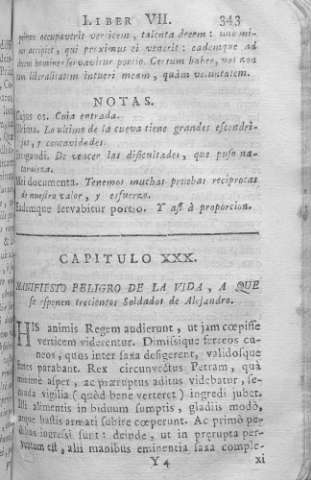 LIBER VII. 343
primus occupaverit verticem, talenta decem: uno mi-
nus accipiet, qui proximus ei venerit: eademque ad
decem homines servabitur portio. Certum habeo, vos non
tam liberalitatem intueri meam, quàm voluntatem.
NOTAS.
Cujus os. Cuia entrada.
Ultima. Lo ultimo de la cueva tiene grandes escondri-
jos, y concavidades.
De vencer las dificultades, que puso na-
turaleza.
documenta. Tenemos muchas pruebas reciprocas
di nuestro valor, y esfuerzo.
Eademque servabitur portio. Y assi à proporcion.
CAPITULO XXX.
MANIFIESTO PELIGRO DE LA VIDA, A QUE
se esponen trecientos Soldados de Alejandro.
HIS animis Regem audierunt, ut jam cœpisse
verticem viderentur. Dimissique ferreos cu-
neos, quos inter saxa defigerent, validosque
funes parabant. Rex circumvectus Petram, quà
minimè asper, ac præruptus aditus videbatur, se-
cunda vigilia (quòd bene verteret) ingredi jubet.
Illi alimentis in biduum sumptis, gladiis modò,
atque hastis armati subire cœperunt. Ac primò pe-
dibus ingressi sunt: deinde, ut in prærupta per-
ventum est, alii manibus eminentia saxa comple-
Y 4 xi